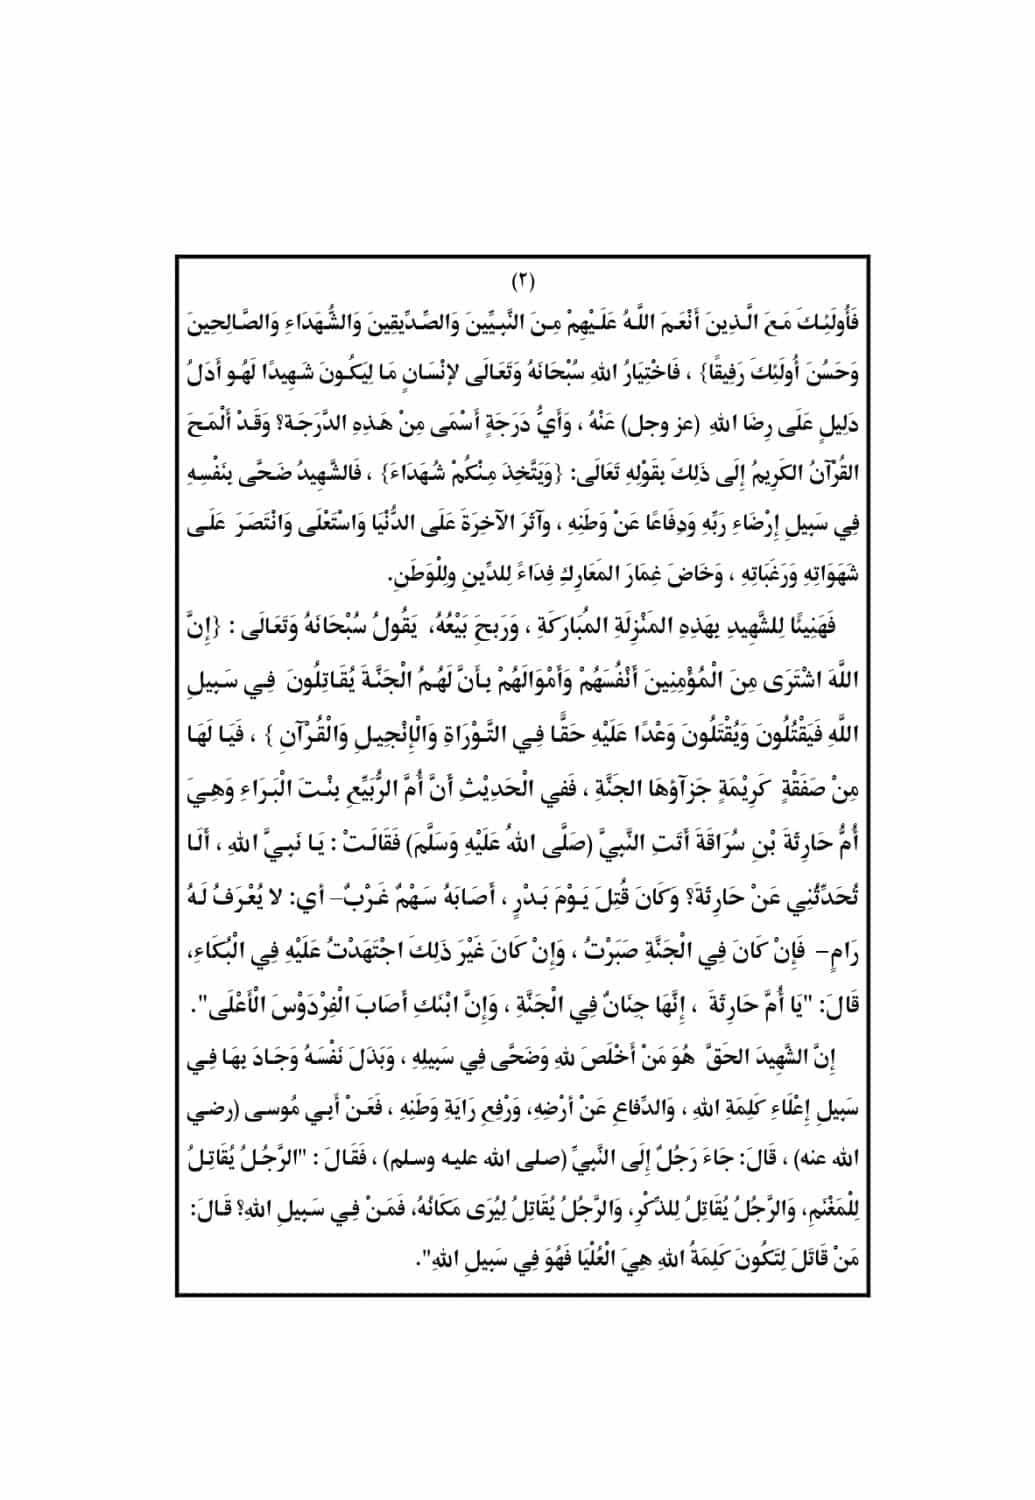 (٢)
فَأُولَئِكَ مَعَ الَّذِينَ أَنْعَمَ اللَّهُ عَلَيْهِمْ مِنَ النَّبِيِّينَ وَالصِّدِّيقِينَ وَالشُّهَدَاءِ وَالصَّالِحِينَ
وَحَسُنَ أُولَئِكَ رَفِيقًا} ، فَاخْتِيَارُ اللهِ سُبْحَانَهُ وَتَعَالَى لإنْسَانٍ مَا لِيَكُونَ شَهِيدًا لَهُو أَدَلُ
دَلِيلٍ عَلَى رِضَا اللهِ (عز وجل) عَنْهُ ، وَأَيُّ دَرَجَةٍ أَسْمَى مِنْ هَذِهِ الدَّرَجَة؟ وَقَدْ أَلْمَحَ
القُرْآنُ الكَرِيمُ إِلَى ذَلِكَ بِقَوْلِهِ تَعَالَى: {وَيَتَّخِذَ مِنْكُمْ شُهَدَاءَ} ، فَالشَّهِيدُ ضَحَّى بِنَفْسِهِ
فِي سَبِيلِ إِرْضَاءِ رَبِّهِ وَدِفَاعًا عَنْ وَطَنِهِ ، وَآثَرَ الآخِرَةَ عَلَى الدُّنْيَا وَاسْتَعْلَى وَانْتَصَرَ عَلَى
شَهَوَاتِهِ وَرَغَبَاتِهِ ، وَخَاضَ غِمَارَ المَعَارِكِ فِدَاءً لِلدِّينِ ولِلْوَطَنِ.
فَهَنِيئًا لِلشَّهِيدِ بِهَذِهِ المَنْزِلَةِ المُبَارَكَةِ ، وَرَبِحَ بَيْعُهُ، يَقُولُ سُبْحَانَهُ وَتَعَالَى : {إِنَّ
اللَّهَ اشْتَرَى مِنَ الْمُؤْمِنِينَ أَنْفُسَهُمْ وَأَمْوَالَهُمْ بِأَنَّ لَهُمُ الْجَنَّةَ يُقَاتِلُونَ فِي سَبِيلِ
اللَّهِ فَيَقْتُلُونَ وَيُقْتَلُونَ وَعْدًا عَلَيْهِ حَقًّا فِي التَّوْرَاةِ وَالْإِنْجِيلِ وَالْقُرْآنِ } ، فَيَا لَهَا
مِنْ صَفَقْةٍ كَرِيْمَةٍ جَزآؤهَا الجَنَّةِ ، فَفي الْحَدِيْثِ أَنَّ أُمَّ الرُّبَيِّعِ بِنْتَ الْبَرَاءِ وَهِيَ
أُمُّ حَارِثَةَ بْنِ سُرَاقَةَ أَتَتِ النَّبِيَّ (صَلَّى اللهُ عَلَيْهِ وَسَلَّمَ) فَقَالَتْ : يَا نَبِيَّ اللهِ ، أَلَا
تُحَدِّثُنِي عَنْ حَارِثَةَ؟ وَكَانَ قُتِلَ يَوْمَ بَدْرٍ ، أَصَابَهُ سَهْمٌ غَرْبٌ– أي: لا يُعْرَفُ لَهُ
رَامٍ– فَإِنْ كَانَ فِي الْجَنَّةِ صَبَرْتُ ، وَإِنْ كَانَ غَيْرَ ذَلِكَ اجْتَهَدْتُ عَلَيْهِ فِي الْبُكَاءِ،
قَالَ: "يَا أُمَّ حَارِثَةَ ، إِنَّهَا جِنَانٌ فِي الْجَنَّةِ ، وَإِنَّ ابْنَكِ أَصَابَ الْفِرْدَوْسَ الْأَعْلَى".
إِنَّ الشَّهِيدَ الحَقَّ هُوَ مَنْ أَخْلَصَ للهِ وَضَحَّى فِي سَبِيلِهِ ، وَبَذَلَ نَفْسَهُ وَجَادَ بِهَا فِي
سَبِيلِ إِعْلَاءِ كَلِمَةِ اللهِ ، وَالدِّفاعِ عَنْ أرْضِهِ، وَرْفعِ رَايَةِ وَطَنِهِ ، فَعَنْ أَبِي مُوسى (رضي
الله عنه) ، قَالَ: جَاءَ رَجُلٌ إِلَى النَّبِيِّ (صلى الله عليه وسلم) ، فَقَالَ : "الرَّجُلُ يُقَاتِلُ
لِلْمَغْنَمِ، وَالرَّجُلُ يُقَاتِلُ لِلذِّكْرِ، وَالرَّجُلُ يُقَاتِلُ لِيُرَى مَكَانُهُ، فَمَنْ فِي سَبِيلِ اللهِ؟ قَالَ:
مَنْ قَاتَلَ لِتَكُونَ كَلِمَةُ اللهِ هِيَ الْعُلْيَا فَهُوَ فِي سَبِيلِ اللهِ".